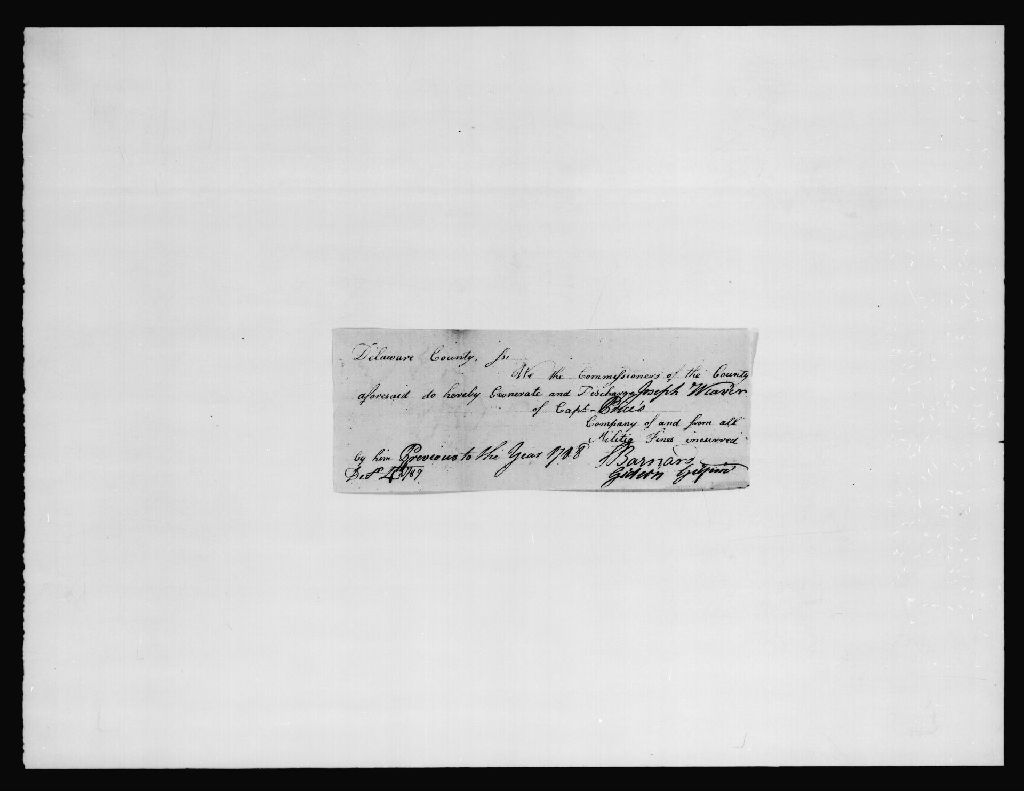 Delaware County, ss
We the Commissioners of the County
aforesaid do hereby Exonerate and Discharge Joseph Weaver
of Capt. Price's
Company of and from all
Militia Fines incurred
by him Previous to the Year 1788
Decr 4th 1789
J Barnard
Gideon Gilpin